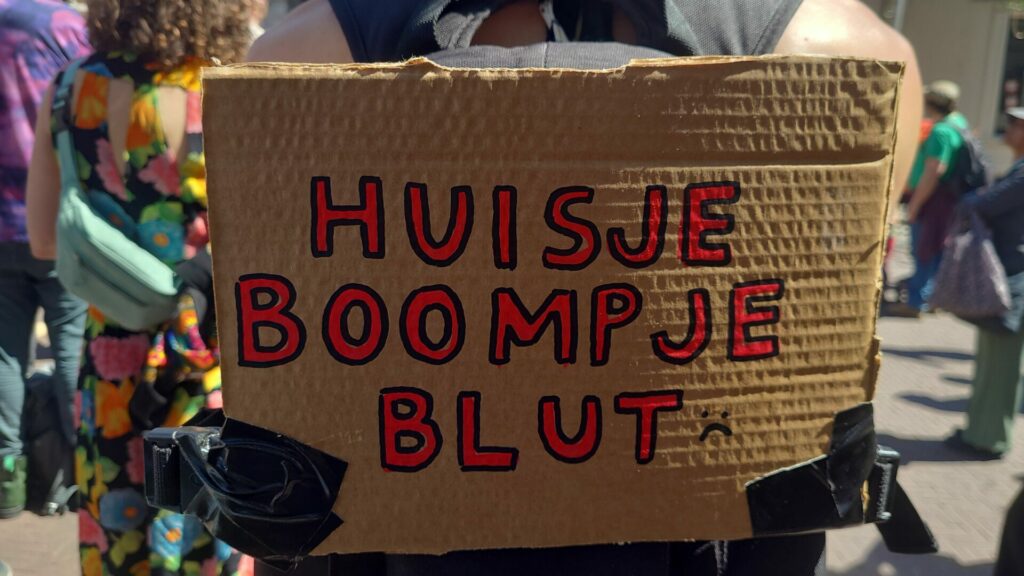 HUISJE
BOOMPJE
BLUT :(